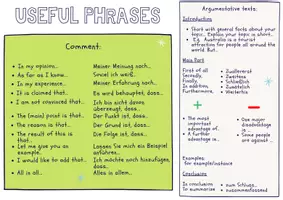 USEFUL PHRASES
Comment:
In my opinion... Meiner Meinung nach...
As far as I know... Soviel ich weiß...
In my experience... Meiner Erfahrung nach...
It is claimed that... Es wird behauptet, dass...
I am not convinced that... Ich bin nicht davon
überzeugt, dass...
The (main) point is that... Der Punkt ist, dass...
The reason is that... Der Grund ist, dass...
The result of this is
that...
Die Folge ist, dass...
Let me give you an
example...
Lassen Sie mich ein Beispiel
anführen...
I would like to add that... Ich möchte noch hinzufügen,
dass...
All in all... Alles in allem...
Argumentative texts:
Introduction
Start with general facts about your
topic. Explain your topic in short.
E.g. Australia is a tourist
attraction for people all around
the world. But...
Main Part
First of all Zuallererst
Secondly, Zweitens
Finally, Schließlich
In addition, Zusätzlich
Furthermore, Weiterhin
+
-
The most
important
advantage of..
A further
advantage is..
One major
disadvantage
is ..
Some people
are against
...
Examples:
for example/instance
Conclusion
In conclusion zum Schluss..
To summarise zusammenfassend